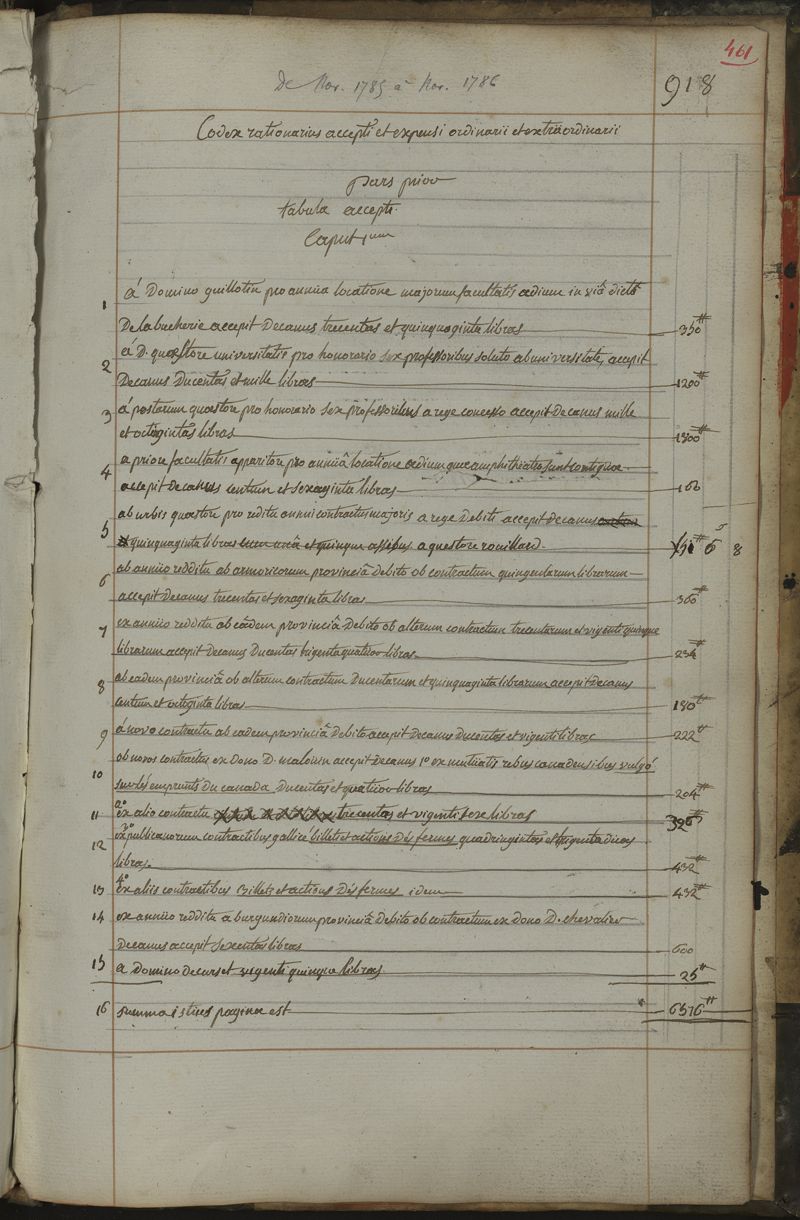 461
De Nov. 1785 à Nov. 1786
918
Codex rationarius accepti et expensi ordinarii et extraordinarii
pars prior
tabula accepti.
Caput 1um
1 á Domino guillotin pro annua locatione majorum facultatis ædium in viâ dictâ
De la bucherie accepit Decanus trecentas et quinquaginta libras 350#
2 á D. quæstore universitatis pro honorario sex professoribus soluto ab universitate, accepit
Decanus Ducentas et mille libras 1200#
3 á postarum quæstore pro honorario sex professoribus a rege concesso accepit decanus mille
et octogintas libras 1800#
4 a priore facultatis apparitore pro annuâ locatione ædium quæ amphitheatro sunt contiguæ.
accepit decanus centum et sexaginta libras 160
5 ab urbis quæstore pro reditu annui contractus majoris a rege Debiti accepit decanus
quinquaginta libras et quinque assibus a questore rouillard. 51# 5s 8
6 ab annuo redditu ab armoricorum provinciâ debito ob contractum quingentarum librarum
accepit decanus trecentas et sexaginta libras 360#
7 ex annuo redditu ab eâdem provinciâ Debito ob alterum contractum trecentarum et vigenti quinque
librarum accepit Decanus Ducentas trigenta quatuor libras 234#
8 ab eadem provinciâ ob alterum contractum Ducentarum et quinquaginta librarum accepit decanus
centum et octoginta libras 180#
9 á novo contractu ab eadem provinciâ Debito accepit Decanus Ducentas et vigenti libras 222#
10 ob novos contractus ex dono D. malouin accepit decanus 1o ex mutuatis rebus canadensibus vulgó
sur les emprunts du canada Ducentas et quatuor libras 204#
11 2o ex alio contractu trecentas et vigenti sex libras 326#
12 3o ex publicanorum contractibus gallicè billets et actions Des fermes quadringintas et trigenta duas
libras 432#
13 4o ex aliis contractibus Billets et actions Des fermes idem 432#
14 ex annuo redditu a burgundiorum provinciâ debito ob contractum ex dono D. chevalier
Decanus accepit sexentas libras 600
15 a domino decurset vigenti quinque libras 25#
16 summa istius paginæ est 6576#